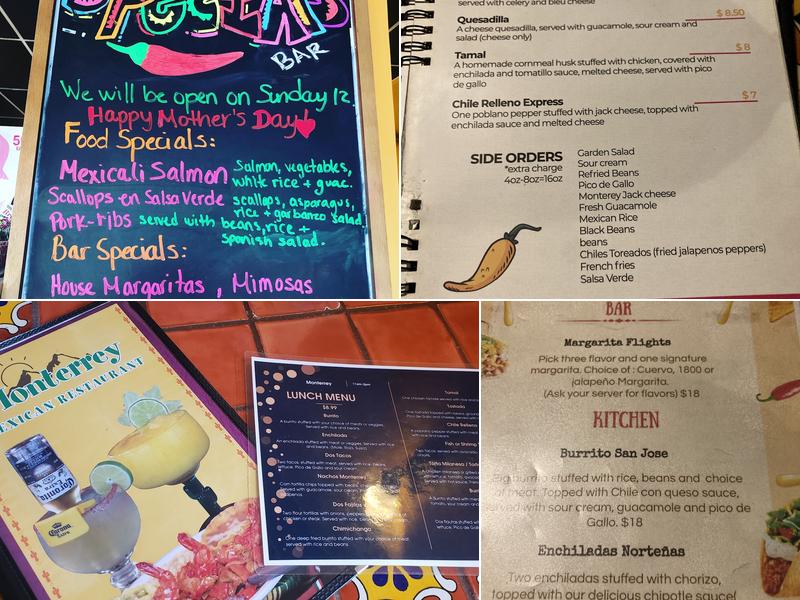 BAR
We will be open on Sunday 12.
Happy Mother's Day!
Food Specials:
Mexicali Salmon Salmon, vegetables,
white rice + guac.
Scallops en Salsa Verde scallops, asparagus,
rice + garbanzo salad
Pork-ribs served with beans, rice +
spanish salad.
Bar Specials:
House Margaritas , Mimosas
served with celery and bleu cheese
$ 8.50
Quesadilla
A cheese quesadilla, served with guacamole, sour cream and
salad (cheese only)
$ 8
Tamal
A homemade cornmeal husk stuffed with chicken, covered with
enchilada and tomatillo sauce, melted cheese, served with pico
de gallo
$ 7
Chile Relleno Express
One poblano pepper stuffed with jack cheese, topped with
enchilada sauce and melted cheese
SIDE ORDERS
*extra charge
4oz-8oz=16oz
Garden Salad
Sour cream
Refried Beans
Pico de Gallo
Monterey Jack cheese
Fresh Guacamole
Mexican Rice
Black Beans
beans
Chiles Toreados (fried jalapenos peppers)
French fries
Salsa Verde
Monterrey
MEXICAN RESTAURANT
Corona
Extra
Corona
Extra
Monterrey
LUNCH MENU
$8.99
Burrito
A burrito stuffed with your choice of meats or veggies.
Served with rice and beans.
Enchilada
An enchilada stuffed with meat or veggies. Served with rice
and beans.
Dos Tacos
Two tacos, stuffed with meat, served with rice, beans,
lettuce, Pico de Gallo and sour cream.
Nachos Monterrey
Corn tortilla chips topped with beans,
Served with guacamole, sour cream,
jalapenos.
Dos Fajitas
Two flour tortillas with onions, peppers
chicken or steak. Served with rice, beans
Chimichanga
One deep fried burrito stuffed with your choice of meat.
served with rice and beans.
Tamal
Tostada
Chile Relleno
Fish or Shrimp
BAR
Margarita Flights
Pick three flavor and one signature
margarita. Choice of : Cuervo, 1800 or
jalapeño Margarita.
(Ask your server for flavors) $18
KITCHEN
Burrito San Jose
Big burrito stuffed with rice, beans and choice
of meat. Topped with Chile con queso sauce,
served with sour cream, guacamole and pico de
Gallo. $18
Enchiladas Norteñas
Two enchiladas stuffed with chorizo,
topped with our delicious chipotle sauce(